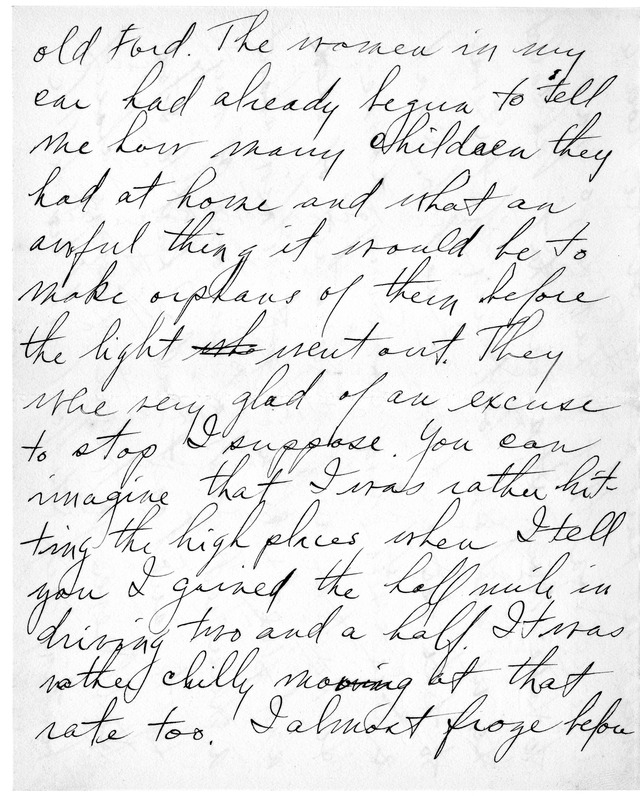 old Ford. The women in my
car had already begun to tell
me how many children they
had at home and what an
awful thing it would be to
make orphans of them before
the light went out. They
were very glad of an excuse
to stop I suppose. You can
imagine that I was rather hit-
ting the high places when I tell
you I gained the half mile in
driving two and a half. It was
rather chilly moving at that
rate too. I almost froze before